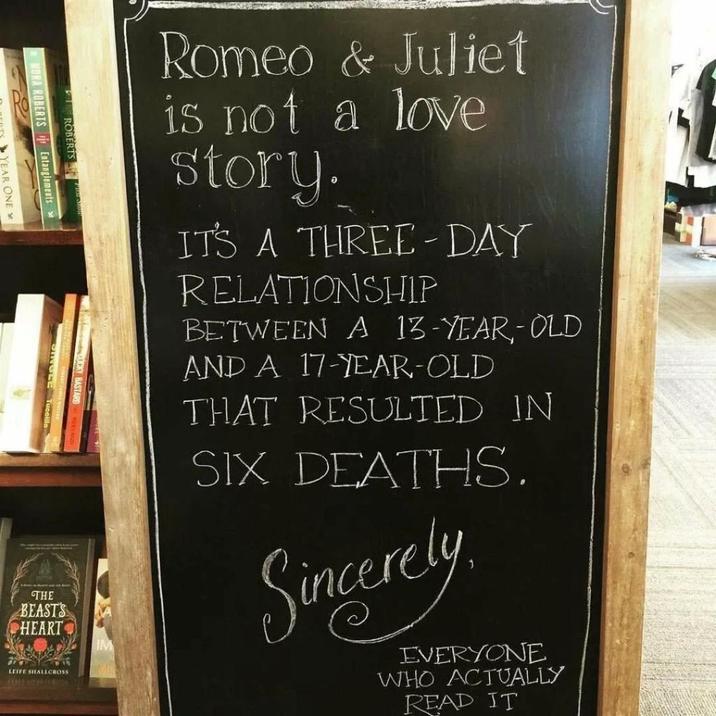 Romeo & Juliet
is not a love
story.
IT'S A THREE-DAY
RELATIONSHIP
BETWEEN A 13-YEAR-OLD
AND A 17-YEAR-OLD
THAT RESULTED IN
SIX DEATHS.
Sincerely,
EVERYONE
WHO ACTUALLY
READ IT
ROBERTS
NORA ROBERTS
Entanglements
YEAR ONE
THE
BEAST'S
HEART
LEIFE SHALLCROSS